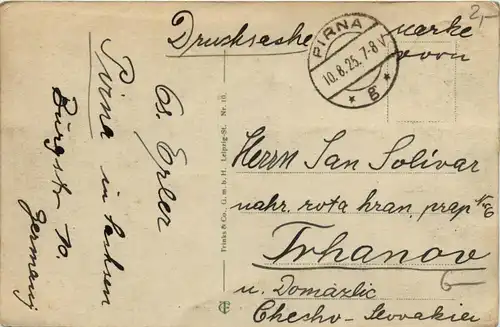 2,-
Drucksache
marke
vorn
PIRNA
10.8.25. 7-8 V
* g *
G. Erler
Pirna in Sachsen
Burgstr. 10.
Germany
Trinks & Co., G. m. b. H., Leipzig-St. Nr. 10.
Herrn Jan Solivar
nahr. rota hran. prap.
Trhanov
u. Domažlic
Checho-Slovakia